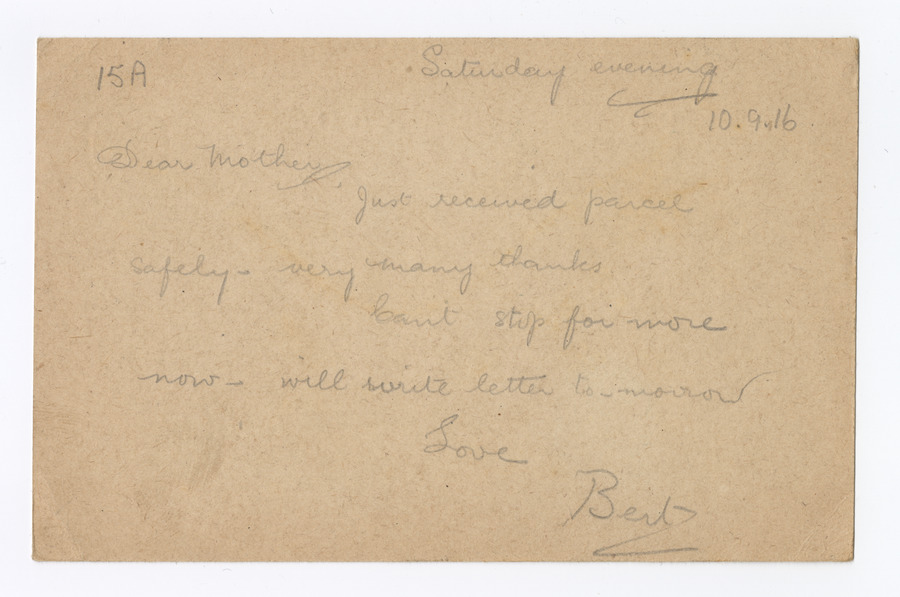 15A
Saturday evening
10.9.16
Dear Mother
Just received parcel
safely - very many thanks.
Can't stop for more
now - will write letter to-morrow
Love
Bert